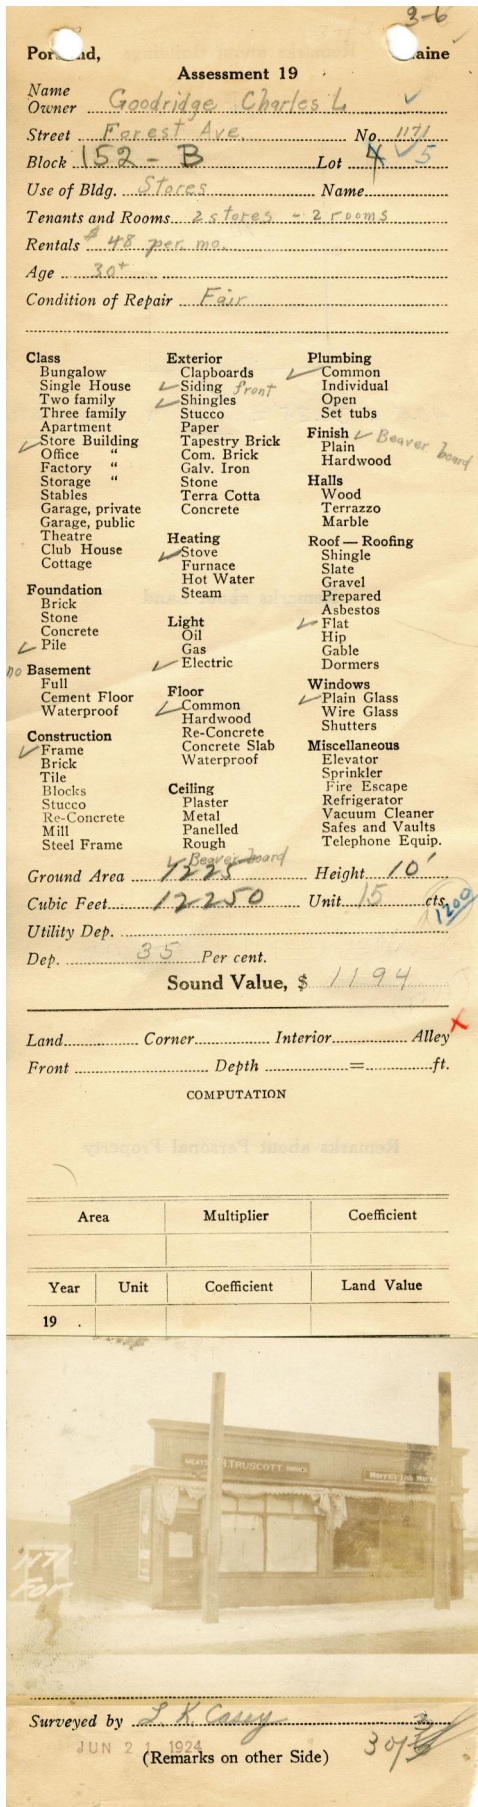 3-6
Portland, Maine
Assessment 19
Name
Owner Goodridge Charles L
Street Forest Ave. No. 1171
Block 152 - B Lot 4 5
Use of Bldg. Stores Name
Tenants and Rooms 2 stores - 2 rooms
Rentals $48 per. mo.
Age 30+
Condition of Repair Fair
Class
Bungalow
Single House
Two family
Three family
Apartment
Store Building
Office "
Factory "
Storage "
Stables
Garage, private
Garage, public
Theatre
Club House
Cottage
Foundation
Brick
Stone
Concrete
Pile
no Basement
Full
Cement Floor
Waterproof
Construction
Frame
Brick
Tile
Blocks
Stucco
Re-Concrete
Mill
Steel Frame
Exterior
Clapboards
Siding front
Shingles
Stucco
Paper
Tapestry Brick
Com. Brick
Galv. Iron
Stone
Terra Cotta
Concrete
Heating
Stove
Furnace
Hot Water
Steam
Light
Oil
Gas
Electric
Floor
Common
Hardwood
Re-Concrete
Concrete Slab
Waterproof
Ceiling
Plaster
Metal
Panelled
Rough
Beaver board
Plumbing
Common
Individual
Open
Set tubs
Finish Beaver board
Plain
Hardwood
Halls
Wood
Terrazzo
Marble
Roof — Roofing
Shingle
Slate
Gravel
Prepared
Asbestos
Flat
Hip
Gable
Dormers
Windows
Plain Glass
Wire Glass
Shutters
Miscellaneous
Elevator
Sprinkler
Fire Escape
Refrigerator
Vacuum Cleaner
Safes and Vaults
Telephone Equip.
Ground Area 1225 Height 10'
Cubic Feet 12250 Unit 15 cts.
1200
Utility Dep.
Dep. 35 Per cent.
Sound Value, $ 1194
Land Corner Interior Alley
Front Depth = ft.
COMPUTATION
Area Multiplier Coefficient
Year Unit Coefficient Land Value
19 .
MEATS TRUSCOTT
1171
For
Surveyed by L. K. Casey
JUN 21 1924
(Remarks on other Side)